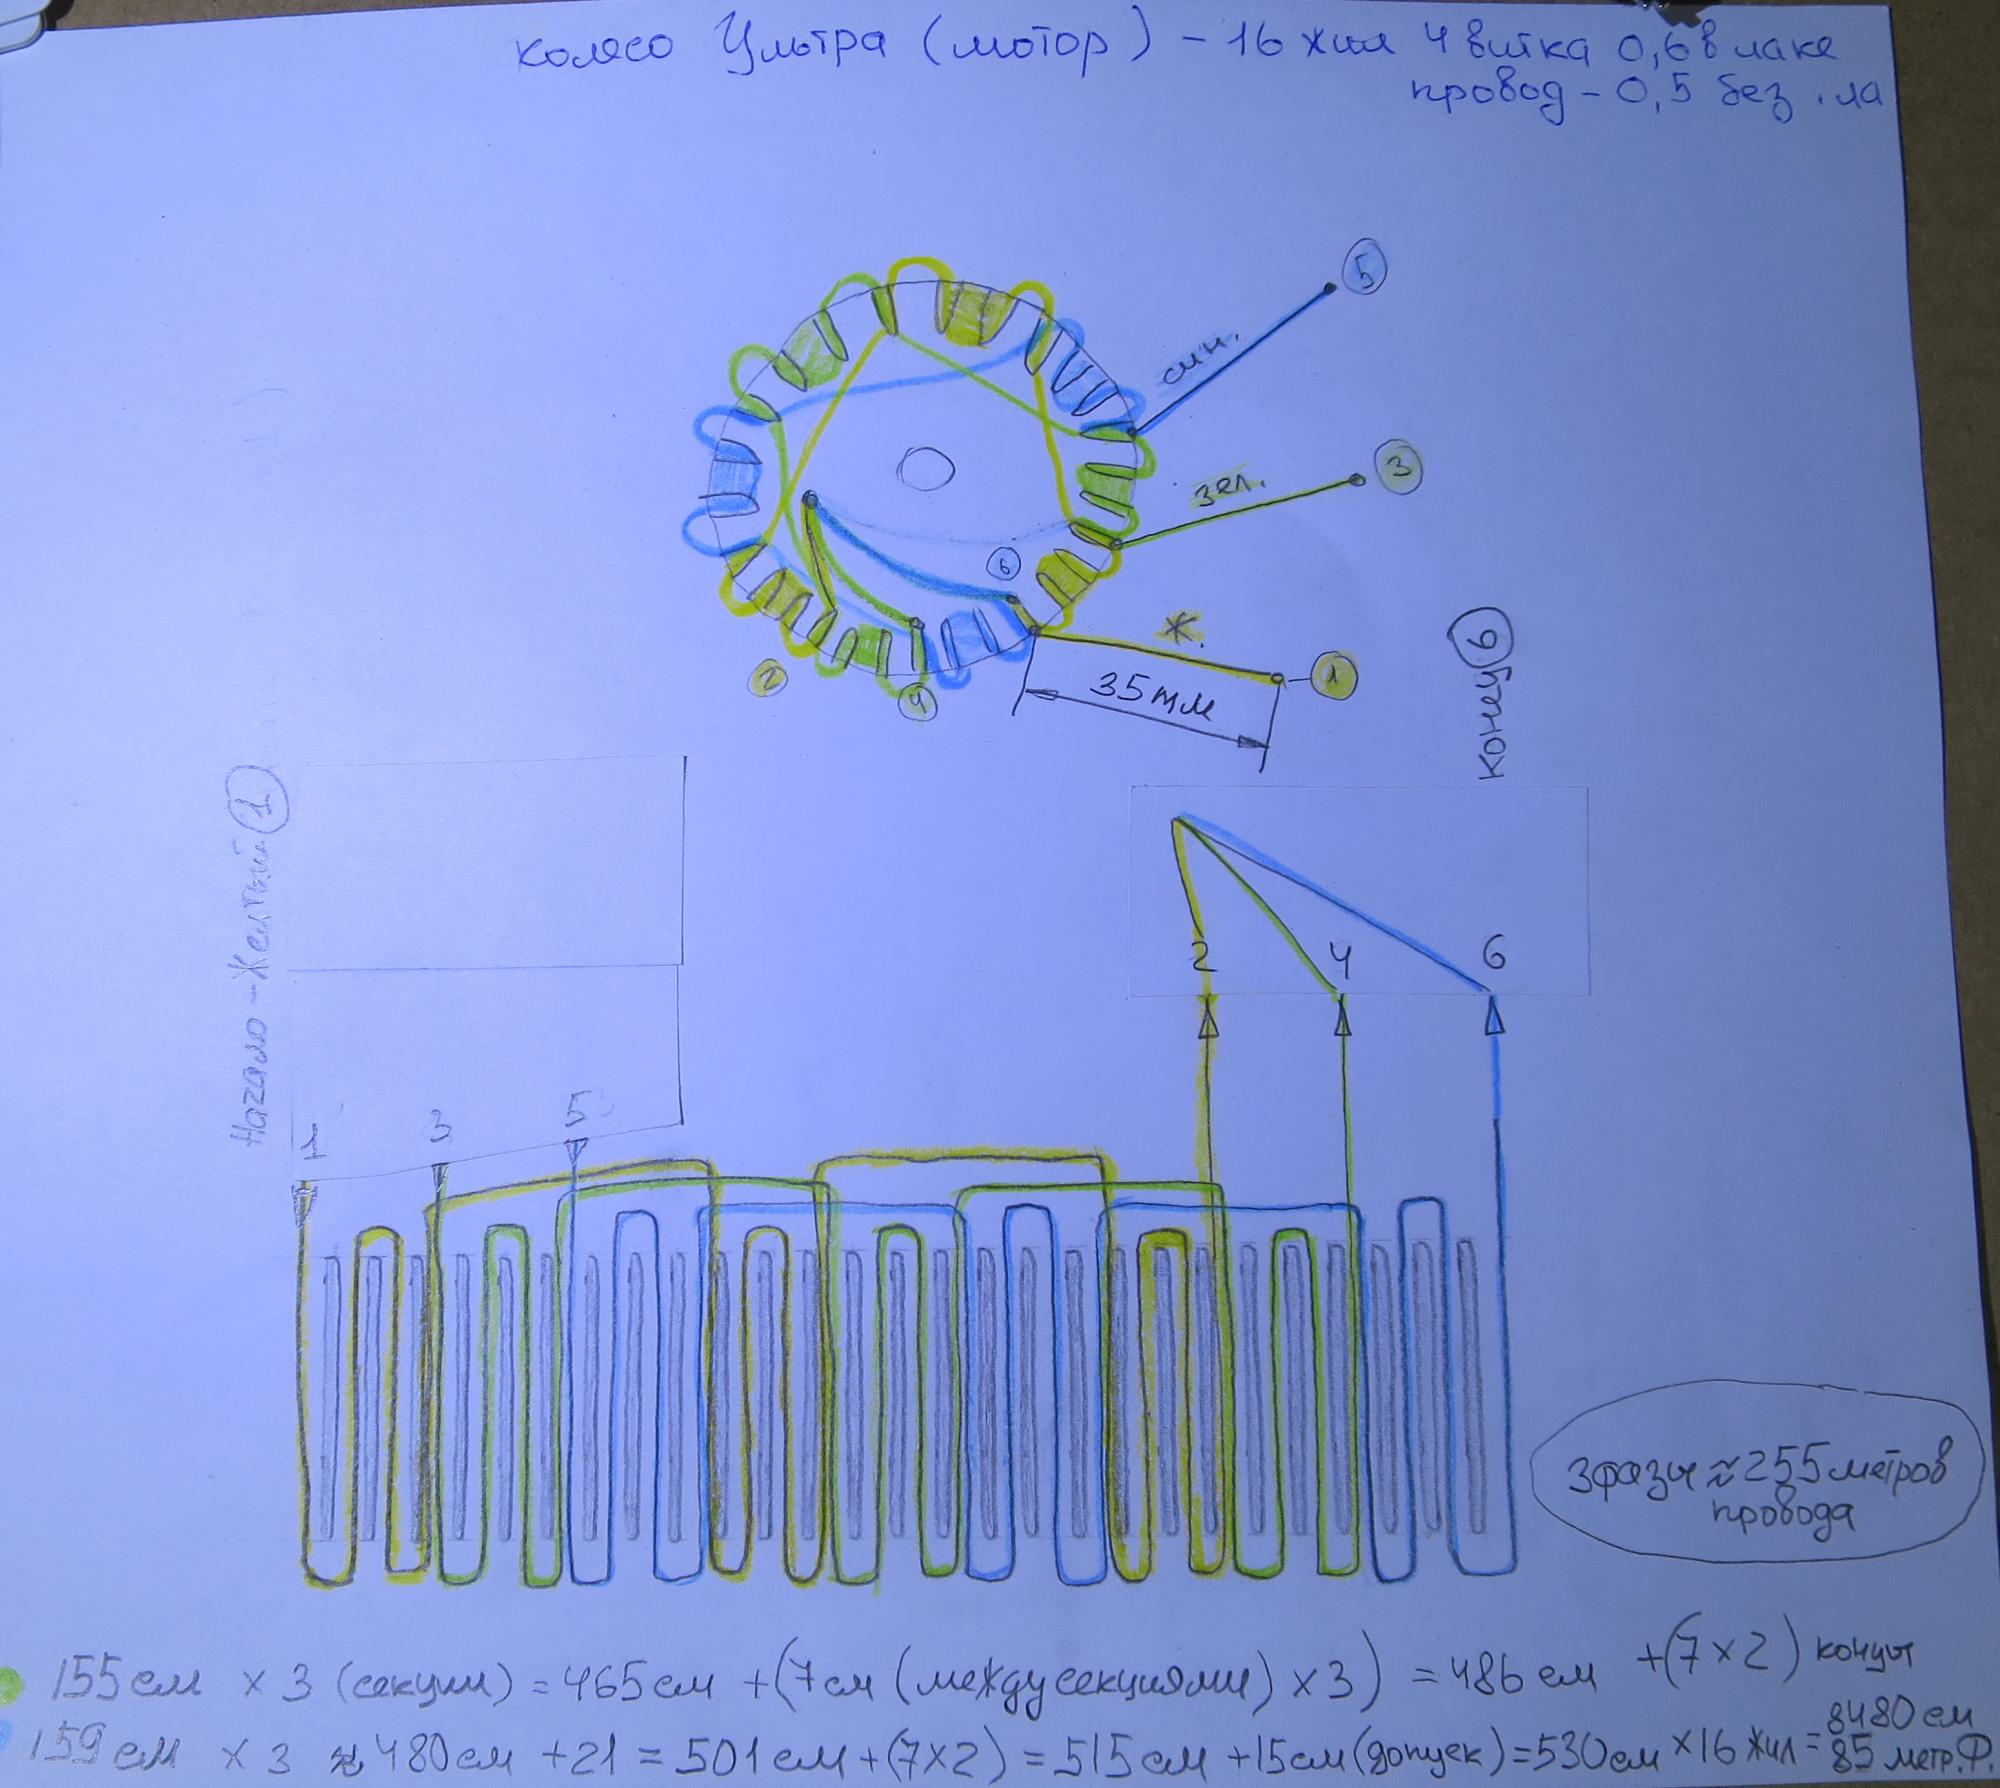 колесо Ультра (мотор) - 16 жил 4 витка 0,6 в лаке
провод - 0,5 без ла
5
син.
3
зел.
6
ж.
1
35 mm
2
4
конец 6
Начало - Желтый 1
2 4 6
1 3 5
3 фазы ≈ 255 метров
провода
155 см х 3 (секции) = 465 см + (7 см (между секциями) х 3) = 486 см + (7 х 2) концы
159 см х 3 ≈ 480 см + 21 = 501 см + (7 х 2) = 515 см + 15 см (допуск) = 530 см х 16 жил = 8480 см
85 метр. Ф.